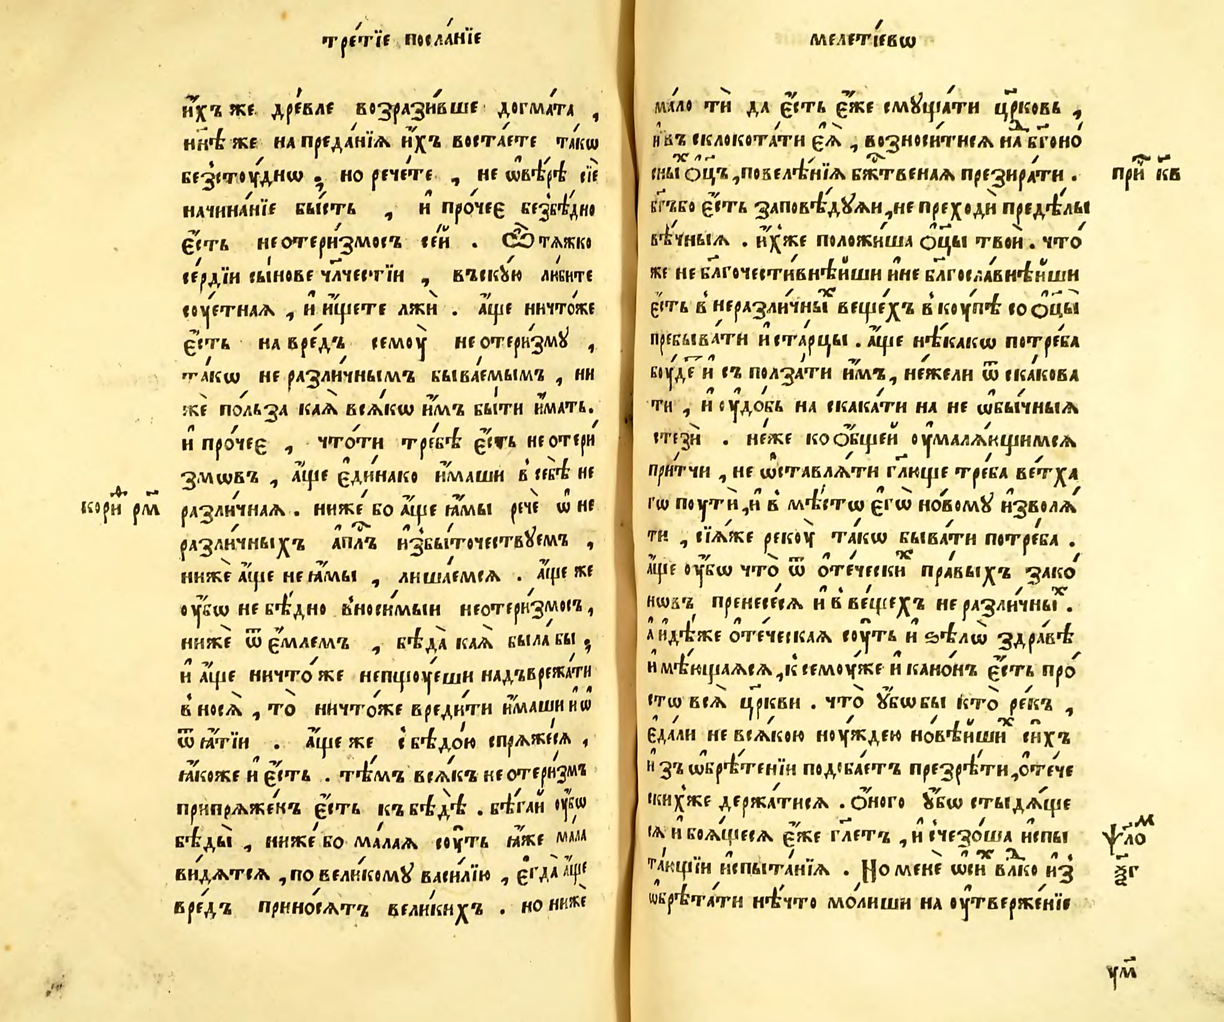 тре́тїе посла́нїе
и҆́хъ же дре́вле возрази́вше догма́та ,
нн҃ѣ же на преда́нїѧ и҆́хъ воста́ете та́кѡ
безстоу́днѡ ; но рече́те , не ѡ҆вѣ́рѣ сїѐ
начина́нїе бы́сть , и҆ про́чеє безбѣ́дно
є҆́сть неотери́змосъ се́й . Ѽ тѧ́жко
се́рдїи сы́нове чл҃честїи , въску́ю лю́бите
соу́етнаѧ , и҆ и҆́щете лжѝ . а҆́ще ничто́же
є҆́сть на вре́дъ семоу̀ неотери́зму ,
та́кѡ не разли́чнымъ быва́емымъ , ни
жѐ по́льза ка́ѧ всѧ́кѡ и҆́мъ бы́ти и҆́мать.
и҆ про́чеє , что́ти тре́бѣ є҆́сть неотери́
змѡвъ , а҆́ще є҆ди́нако и҆́маши в себѣ̀ не
разли́чнаѧ . ниже́ бо а҆́ще ꙗ҆мы̀ речѐ ѡ҆ не
коріⷴ҇ рм҃
разли́чныхъ а҆пⷭ҇лъ и҆збы́точествуемъ ,
нижѐ а҆́ще не ꙗ҆мы̀ , лиша́емсѧ . а҆́ще же
оу҆́бѡ не бѣ́дно вноси́мыи неотери́змосъ ,
нижѐ ѿ є҆́млемъ , бѣда̀ ка́ѧ была́ бы ;
и҆ а҆́ще ничто́ же непщоу́еши надъврежа́ти
в носѧ̀ , то̀ ничто́же вреди́ти и҆́маши и҆ ѡ҆
ѿ ꙗ҆́тїи . а҆́ще же с бѣдо́ю спрѧже́сѧ ,
ꙗ҆́коже и҆ є҆́сть . тѣ́мъ всѧ́къ неотери́змъ
припрѧже́нъ є҆́сть къ бѣдѣ̀ . бѣ́гай оу҆́бѡ
бѣды̀ , ниже́ бо ма́лаѧ соу́ть ꙗ҆́же ма́ла
ви́дѧтсѧ , по вели́кому васи́лїю , є҆гда̀ а҆́ще
вре́дъ прино́сѧтъ вели́кихъ . но нижѐ
меле́тїевѡ
ма́ло тѝ да є҆́сть є҆́же смуща́ти цр҃ковь ,
и҆ въ склокота́ти є҆ѧ̀ , возноси́тисѧ на бг҃оно́
сныⷯ ѻ҆ц҃ъ , повелѣ́нїѧ бж҃твенаѧ презира́ти .
приⷮ кв
бг҃ъбо є҆́сть заповѣ́дуѧи , не преходѝ предѣ́лы
вѣ́чныѧ . и҆́хже положи́ша ѻ҆ц҃ы твоѝ . что́
же не бл҃гочести́внѣйши и҆не бл҃госла́внѣйши
є҆́сть в неразли́чныⷯ веще́хъ вкоу́пѣ со ѻ҆ц҃ы̀
пребыва́ти и҆ ста́рцы . а҆́ще нѣ́какѡ потре́ба
боу́деⷮ и҆ съ полза́ти и҆́мъ , не́жели ѿ скакова
ти , и҆ оу҆до́бь на скака́ти на не ѡ҆бы́чныѧ
стезѝ . не́же ко ѻ҆́бщей оу҆малѧ́ющимсѧ
при́тчи , не ѡ҆ставлѧ́ти гл҃юще тре́ба ве́тха
гѡ поутѝ , и҆ в мѣ́стѡ є҆гѡ̀ но́вому и҆зволѧ́
ти , сїѧ́же рекоу̀ та́кѡ быва́ти потре́ба .
а҆́ще оу҆́бѡ что̀ ѿ ѻ҆те́ческиⷯ пра́выхъ зако́
нѡвъ пренесе́сѧ и҆ в ве́щехъ не разли́чныⷯ .
а҆ и҆дѣ́же ѻ҆те́ческаѧ соу́ть и҆ ѕѣлѡ̀ здра́вѣ
и҆мѣ́ющаѧсѧ , к семоу́же и҆ кано́нъ є҆́сть про́
стѡ всеѧ̀ цр҃кви . что̀ у҆́бѡбы кто̀ ре́къ ,
є҆да́ли не всѧ́кою ноу́ждею нове́йшиⷯ си́хъ
и҆зъ ѡ҆брѣте́нїи подоба́етъ презрѣ́ти , ѻ҆те́че
ски́хже держа́тисѧ . ѻ҆́ного у҆́бѡ стыдѧ́ще
сѧ и҆ боѧ́щесѧ є҆́же гл҃етъ , и҆счезо́ша и҆спы
ѱⷧ҇ло́ⷨ
та́ющїи и҆спыта́нїѧ . Но менѐ ѡ҆сиⷯ влⷣко и҆з̾
ѡ҆брѣта́ти нѣ́что мо́лиши на оу҆твержє́нїе
ѹм҃